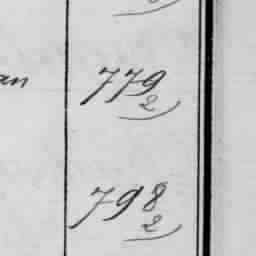 an 779
2
798
2